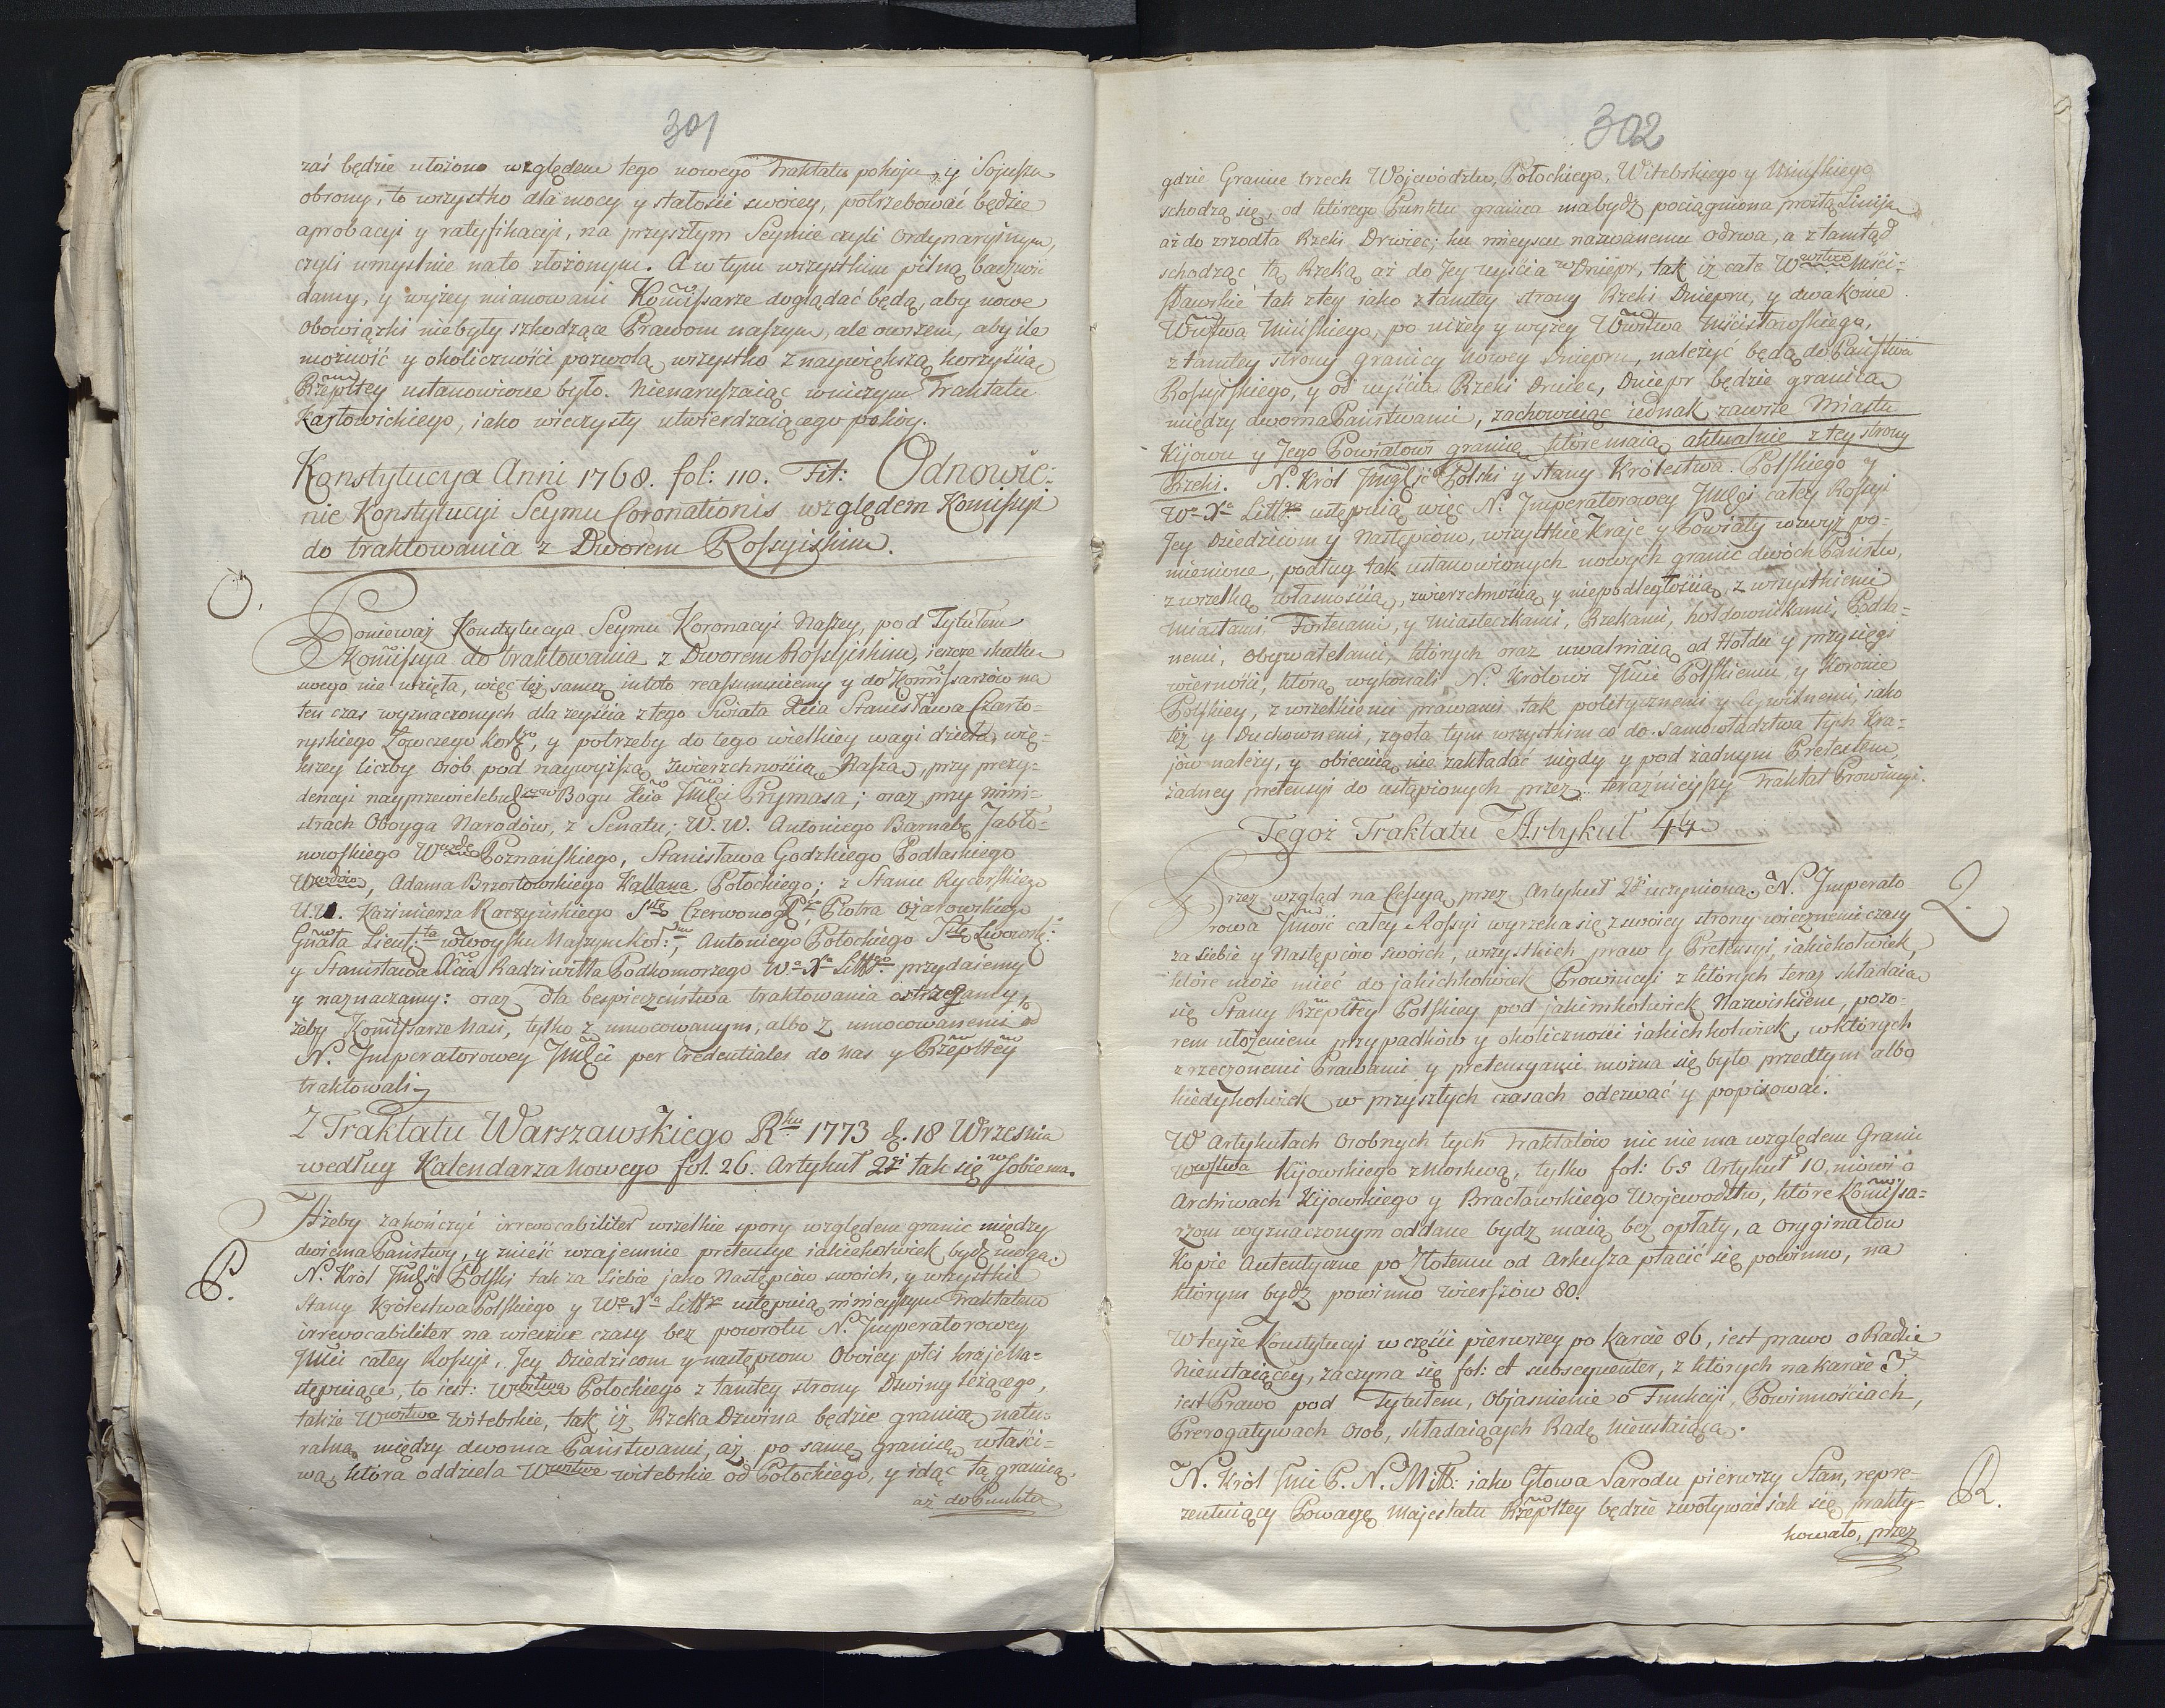 301
zaś będzie ułożono względem tego nowego Traktatu pokoju, y Sojuszu
obrony, to wszystko dla mocy y stałości swoiey, potrzebować będzie
aprobacyi y ratyfikacyi, na przyszłym Seymie czyli ordynaryinym,
czyli umyślnie nato złożonym. A w tym wszystkim pilną baczność
damy, y wyżey mianowani Kommissarze doglądać będą, aby nowe
obowiązki niebyły szkodzące Prawom naszym, ale owszem, aby ile
możność y okoliczności pozwolą, wszystko z naywiększą korzyścią
Rzepltey ustanowione było. Nienaruszaiąc wniczym Traktatu
Karłowickiego, iako wieczysty utwierdzaiącego pokoy.
Konstytucya Anni 1768. fol: 110. Tit: Odnowie-
nie Konstytucyi Seymu Coronationis względem Komissyi
do traktowania z Dworem Rossyiskim.
O.
Ponieważ Konstytucya Seymu Koronacyi Naszey, pod Tytułem
Komissya do traktowania z Dworem Rossyiskim, ieszcze skutku
swego nie wzięła, więc też samą in toto reassumuiemy y do Kommissarzów na
ten czas wyznaczonych dla zeyścia z tego Swiata Xcia Stanisława Czarto-
ryskiego Łowczego Kor:go, y potrzeby do tego wielkiey wagi dzieła, więk-
szey liczby osób pod naywyższą Zwierzchnością Naszą, przy prezy-
dencyi nayprzewielebnieyszego w Bogu Xcia Jmci Prymasa; oraz przy mini-
strach Oboyga Narodów, z Senatu; W. W. Antoniego Barnabę Jabło-
nowskiego Wwdę Poznańskiego, Stanisława Godzkiego Podlaskiego
Wwdów, Adama Brzostowskiego Kasztlana Połockiego; z Stanu Rycerskiego
U. U. Kazimierza Raczyńskiego Stę Czerwonogr, Piotra Ożarowskiego
Gnała Lieut:ta w woysku Naszym Kor:m, Antoniego Potockiego Stę Lwowsk:
y Stanisława Xcia Radziwiłła Podkomorzego W.o X.a Litt.go przydaiemy
y naznaczamy: oraz dla bespieczeństwa traktowania ostrzegamy,
żeby Kommissarze Nasi, tylko z umocowanym, albo z umocowanemi od
N. Imperatorowey Jmści per Credentiales do nas y Rzepltey
traktowali.
Z Traktatu Warszawskiego Rku 1773 d. 18 Wrzesnia
według Kalendarza Nowego fol. 26. Artykuł 2gi tak się w sobie ma.
P.
Ażeby zakończyć irrevocabiliter wszelkie spory względem granic między
dwiema Państwy, y znieść wzajemnie pretensye iakieżkolwiek bydź mogą.
N. Król Jmść Polski tak za Siebie jako Następców swoich, y wszystkie
Stany Królestwa Polskiego y W.o X.a Litt.go ustępuią ninieyszym Traktatem
irrevocabiliter na wieczne czasy bez powrotu N. Imperatorowey
Jmści całey Rossyi, Jey Dziedzicom y następcom Oboiey płci kraje Na-
stępuiące, to iest: Wwstwa Połockiego z tamtey strony Dzwiny leżącego,
także Wwstwo Witebskie, tak iż Rzeka Dzwina będzie granicą natu-
ralną między dwoma Państwami, aż po samę granicę właści-
wą, która oddziela Wwstwo witebskie od Połockiego, y idąc tą granicą,
aż do Punktu
302
gdzie Granice trzech Wojewodztw, Połockiego, Witebskiego y Mińskiego
schodzą się, od którego Punktu granica ma bydź pociągniona prostą Liniją
aż do zrzodła Rzeki Drwiec; ku mieyscu nazwanemu Odrwa, a ztamtąd
schodząc tą Rzeką aż do Jey uyścia w Dniepr, tak iż całe Wwstwo Mści-
sławskie tak z tey iako z tamtey strony Rzeki Dniepru, y dwa końce
Wwstwa Mińskiego, po niżey y wyżey Wwstwa Mścisławskiego,
z tamtey strony granicy nowey Dniepru, należyć będą do Państwa
Rossyiskiego, y od uyścia Rzeki Drwiec, Dniepr będzie granicą
między dwoma Państwami, zachowuiąc iednak zawsze Miastu
Kijowu y Jego Powiatowi granicę, które maią aktualnie z tey strony
Rzeki. N. Król Jmść Polski y Stany Królestwa Polskiego y
W.o X.a Litt.go ustępuią więc N. Imperatorowey Jmści całey Rossyi
Jey Dziedzicom y Następcom, wszystkie Kraje y Powiaty wzwyż po-
mienione, podług tak ustanowionych nowych granic dwóch Państw,
z wszelką własnością, zwierzchnością y niepodległością, z wszystkiemi
Miastami, Fortecami, y Miasteczkami, Rzekami, hołdownikami, Podda-
nemi, Obywatelami, których oraz uwalniaią od Hołdu y przysięgi
wierności, którą wykonali N. Królowi Jmści Polskiemu, y Koronie
Polskiey, z wszelkiemi prawami tak politycznemi y Cywilnemi, iako
też y Duchownemi, zgoła tym wszystkim co do Samowładztwa tych Kra-
jów należy, y obiecuią nie zakładać nigdy y pod żadnym Pretextem,
żadney pretensyi do ustąpionych przez teraźnieyszy Traktat Prowincyi.
Tegoż Traktatu Artykuł 4ty
Q.
Przez wzgląd na Cessyą, przez Artykuł 2gi uczynioną, N. Imperato-
rowa Jmość całey Rossyi wyrzeka się z swoiey strony wiecznemi czasy
za Siebie y Następców swoich, wszystkich praw y Pretensyi, iakichkolwiek,
które może mieć do jakichkolwiek Prowincyi z których teraz składaią
się Stany Rzepltey Polskiey pod jakimkolwiek Nazwiskiem, pozo-
rem ułożeniem przypadków y okoliczności iakichkolwiek, w których
z rzeczonemi Prawami y pretensyami można się było przedtym albo
kiedykolwiek w przyszłych czasach odezwać y popisować.
W Artykułach Osobnych tych Traktatów nic nie ma względem Granic
Wwstwa Kijowskiego z Moskwą, tylko fol: 65 Artykuł 10. mówi o
Archiwach Kijowskiego y Bracławskiego Wojewodztw, które Kommissa-
rzom wyznaczonym oddane bydz maią bez opłaty, a Oryginałów
Kopie Autentyczne po Złotemu od Arkusza płacić się powinno, na
którym bydz powinno wierszów 80.
W teyże Konstytucyi w części pierwszey po Karcie 86, iest prawo o Radzie
Nieustaiącey, zaczyna się fol: et subsequenter, z których na karcie 3iey
iest Prawo pod Tytułem, Objasnienie o Funkcyi, Powinnościach,
Prerogatywach Osob, składaiących Radę Nieustaiącą.
R.
N. Król Jmci P. N. Miłł: iako Głowa Narodu pierwszy Stan, repre-
zentuiący Powagę Majestatu Rzepltey będzie zwoływać iak się prakty-
kowało, przez